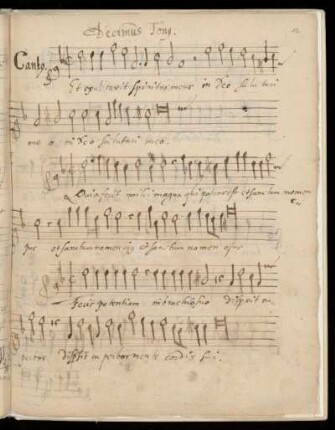 Decimus Tonus.
Canto.
Et exultavit spiritus meus in Deo salutari
meo in Deo salutari meo.
Quia fecit mihi magna qui potens est et sanctum nomen
eius et sanctum nomen eius et sanctum nomen eius
Fecit potentiam in brachio suo dispersit su
perbos dispersit superbos mente cordis sui.